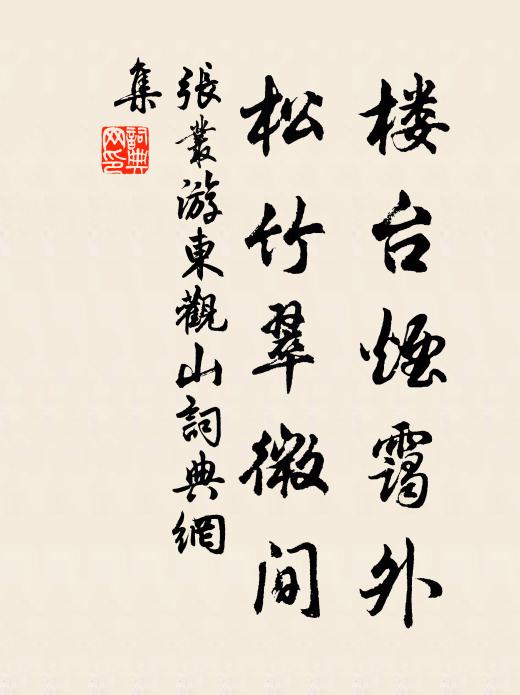 楼台煙靄外
松竹翠微间
張叢游東觀山詞典網
集
詞典
网印